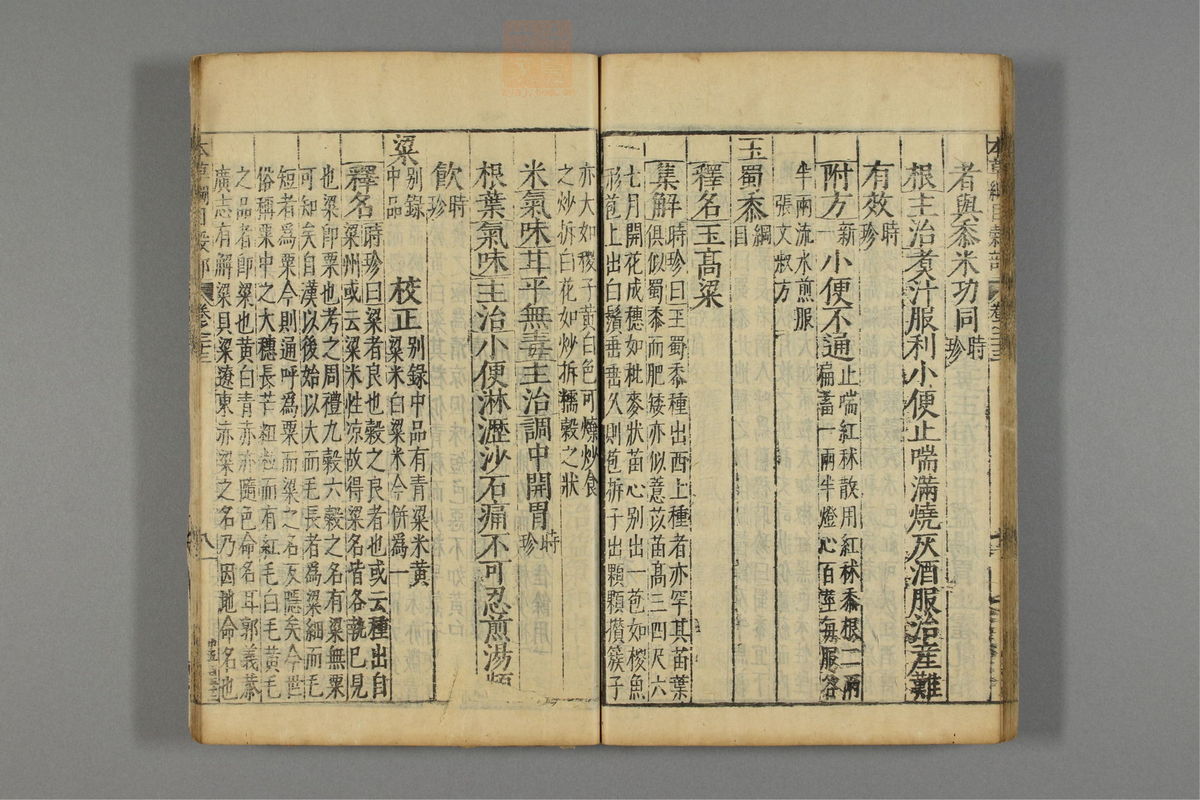 本草綱目穀部 卷二十三
者與黍米功同時珍
根主治煮汁服利小便止喘滿燒灰酒服治産難
有效時珍
附方新一小便不通止喘紅秫散用紅秫黍根二兩
扁蓄一兩半燈心百莖每服各
半兩流水煎服
張文叔方
玉蜀黍綱目
釋名玉高粱
集解時珍曰玉蜀黍種出西土種者亦罕其苗葉
俱似蜀黍而肥矮亦似薏苡苗高三四尺六
七月開花成穗如秕麥狀苗心别出一苞如椶魚
形苞上出白鬚垂垂久則苞拆子出顆顆攢簇子
亦大如椶子黃白色可煠炒食
之炒拆白花如炒拆糯穀之狀
米氣味甘平無毒主治調中開胃時珍
根葉氣味主治小便淋瀝沙石痛不可忍煎湯頻
飲時珍
粱别録中品
校正别録中品有青粱米黃
粱米白粱米今併爲一
釋名時珍曰粱者良也穀之良者也或云種出自
粱州或云粱米性凉故得粱名皆各執己見
也粱即粟也考之周禮九穀六穀之名有粱無粟
可知矣自漢以後始以大而毛長者爲粱細而毛
短者爲粟今則通呼爲粟而粱之名反隱矣今世
俗稱粟中之大穗長芒粗粒而有紅毛白毛黃毛
之品者即粱也黃白青赤亦隨色命名耳郭義恭
廣志有解粱貝粱遼東赤粱之名乃因地命名也
本草綱目穀部 卷二十三 八